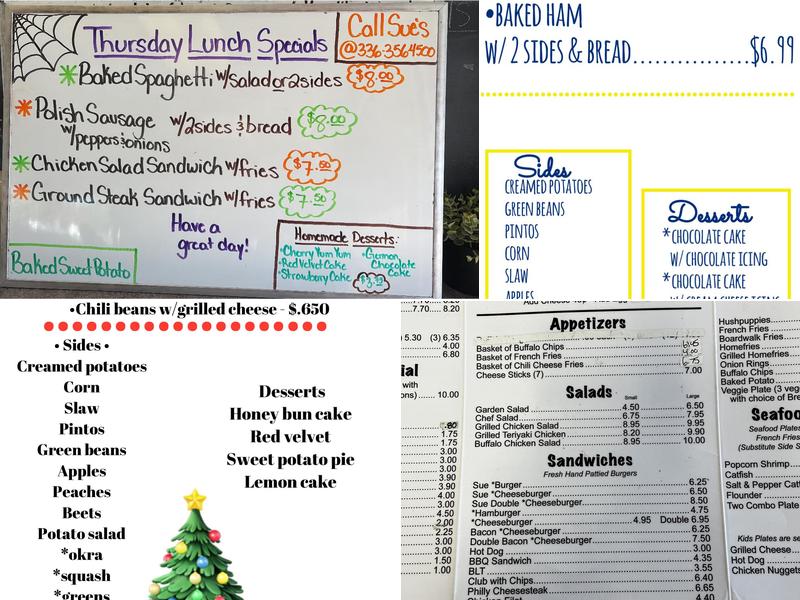 Thursday Lunch Specials
Call Sue's
@336.356.4500
Baked Spaghetti w/salad or 2 sides $8.00
Polish Sausage w/2sides & bread $8.00
w/peppers & onions
Chicken Salad Sandwich w/fries $7.50
Ground Steak Sandwich w/fries $7.50
Have a
great day!
Baked Sweet Potato
Homemade Desserts:
Cherry Yum Yum
Red Velvet Cake
Strawberry Cake
German
Chocolate
Cake
•BAKED HAM
W/ 2 SIDES & BREAD.................$6.99
Sides
CREAMED POTATOES
GREEN BEANS
PINTOS
CORN
SLAW
APPLES
Desserts
*CHOCOLATE CAKE
W/ CHOCOLATE ICING
*CHOCOLATE CAKE
W/ CREAM CHEESE ICING
•Chili beans w/grilled cheese - $.650
• Sides •
Creamed potatoes
Corn
Slaw
Pintos
Green beans
Apples
Peaches
Beets
Potato salad
*okra
*squash
*greens
Desserts
Honey bun cake
Red velvet
Sweet potato pie
Lemon cake
7.70 8.20
5.30 (3) 6.35
4.00
6.80
ial
with
ons) 10.00
1.75
1.75
3.00
3.00
3.00
3.00
3.90
3.90
4.00
3.00
4.50
2.00
2.25
3.00
3.00
1.50
1.00
Appetizers
Basket of Buffalo Chips
Basket of French Fries
Basket of Chili Cheese Fries
Cheese Sticks (7) 7.00
Salads
Small Large
Garden Salad 4.50 6.50
Chef Salad 6.75 7.95
Grilled Chicken Salad 8.95 9.95
Grilled Teriyaki Chicken 8.20 9.90
Buffalo Chicken Salad 8.95 10.00
Sandwiches
Fresh Hand Pattied Burgers
Sue *Burger 6.25
Sue *Cheeseburger 6.50
Sue Double *Cheeseburger 8.50
*Hamburger 4.75
*Cheeseburger 4.95 Double 6.95
Bacon *Cheeseburger 6.25
Double Bacon *Cheeseburger 7.50
Hot Dog 3.00
BBQ Sandwich 4.35
BLT 3.55
Club with Chips 6.40
Philly Cheesesteak 6.65
Chicken Filet 4.40
Hushpuppies
French Fries
Boardwalk Fries
Homefries
Grilled Homefries
Onion Rings
Buffalo Chips
Baked Potato
Veggie Plate (3 veg
with choice of Bre
Seafoo
Seafood Plates
French Fries
(Substitute Side S
Popcorn Shrimp
Catfish
Salt & Pepper Catf
Flounder
Two Combo Plate
Kids Plates are se
Grilled Cheese
Hot Dog
Chicken Nuggets